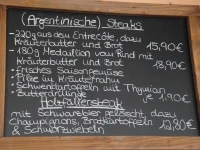 (Argentinische) Steaks
- 220g aus dem Entrecôte, dazu
Kräuterbutter und Brot 15,90€
- 180g Medaillon vom Rind mit
Kräuterbutter und Brot 18,90€
- frisches Saisongemüse
- Pilze im Kräuterrahm
- Schwenkkartoffeln mit Thymian
- Buttergrillinis je 1,90€
Holzfällersteak
mit Schwarzbier gelöscht, dazu
Champignons, Bratkartoffeln 12,80€
& Schmorzwiebeln